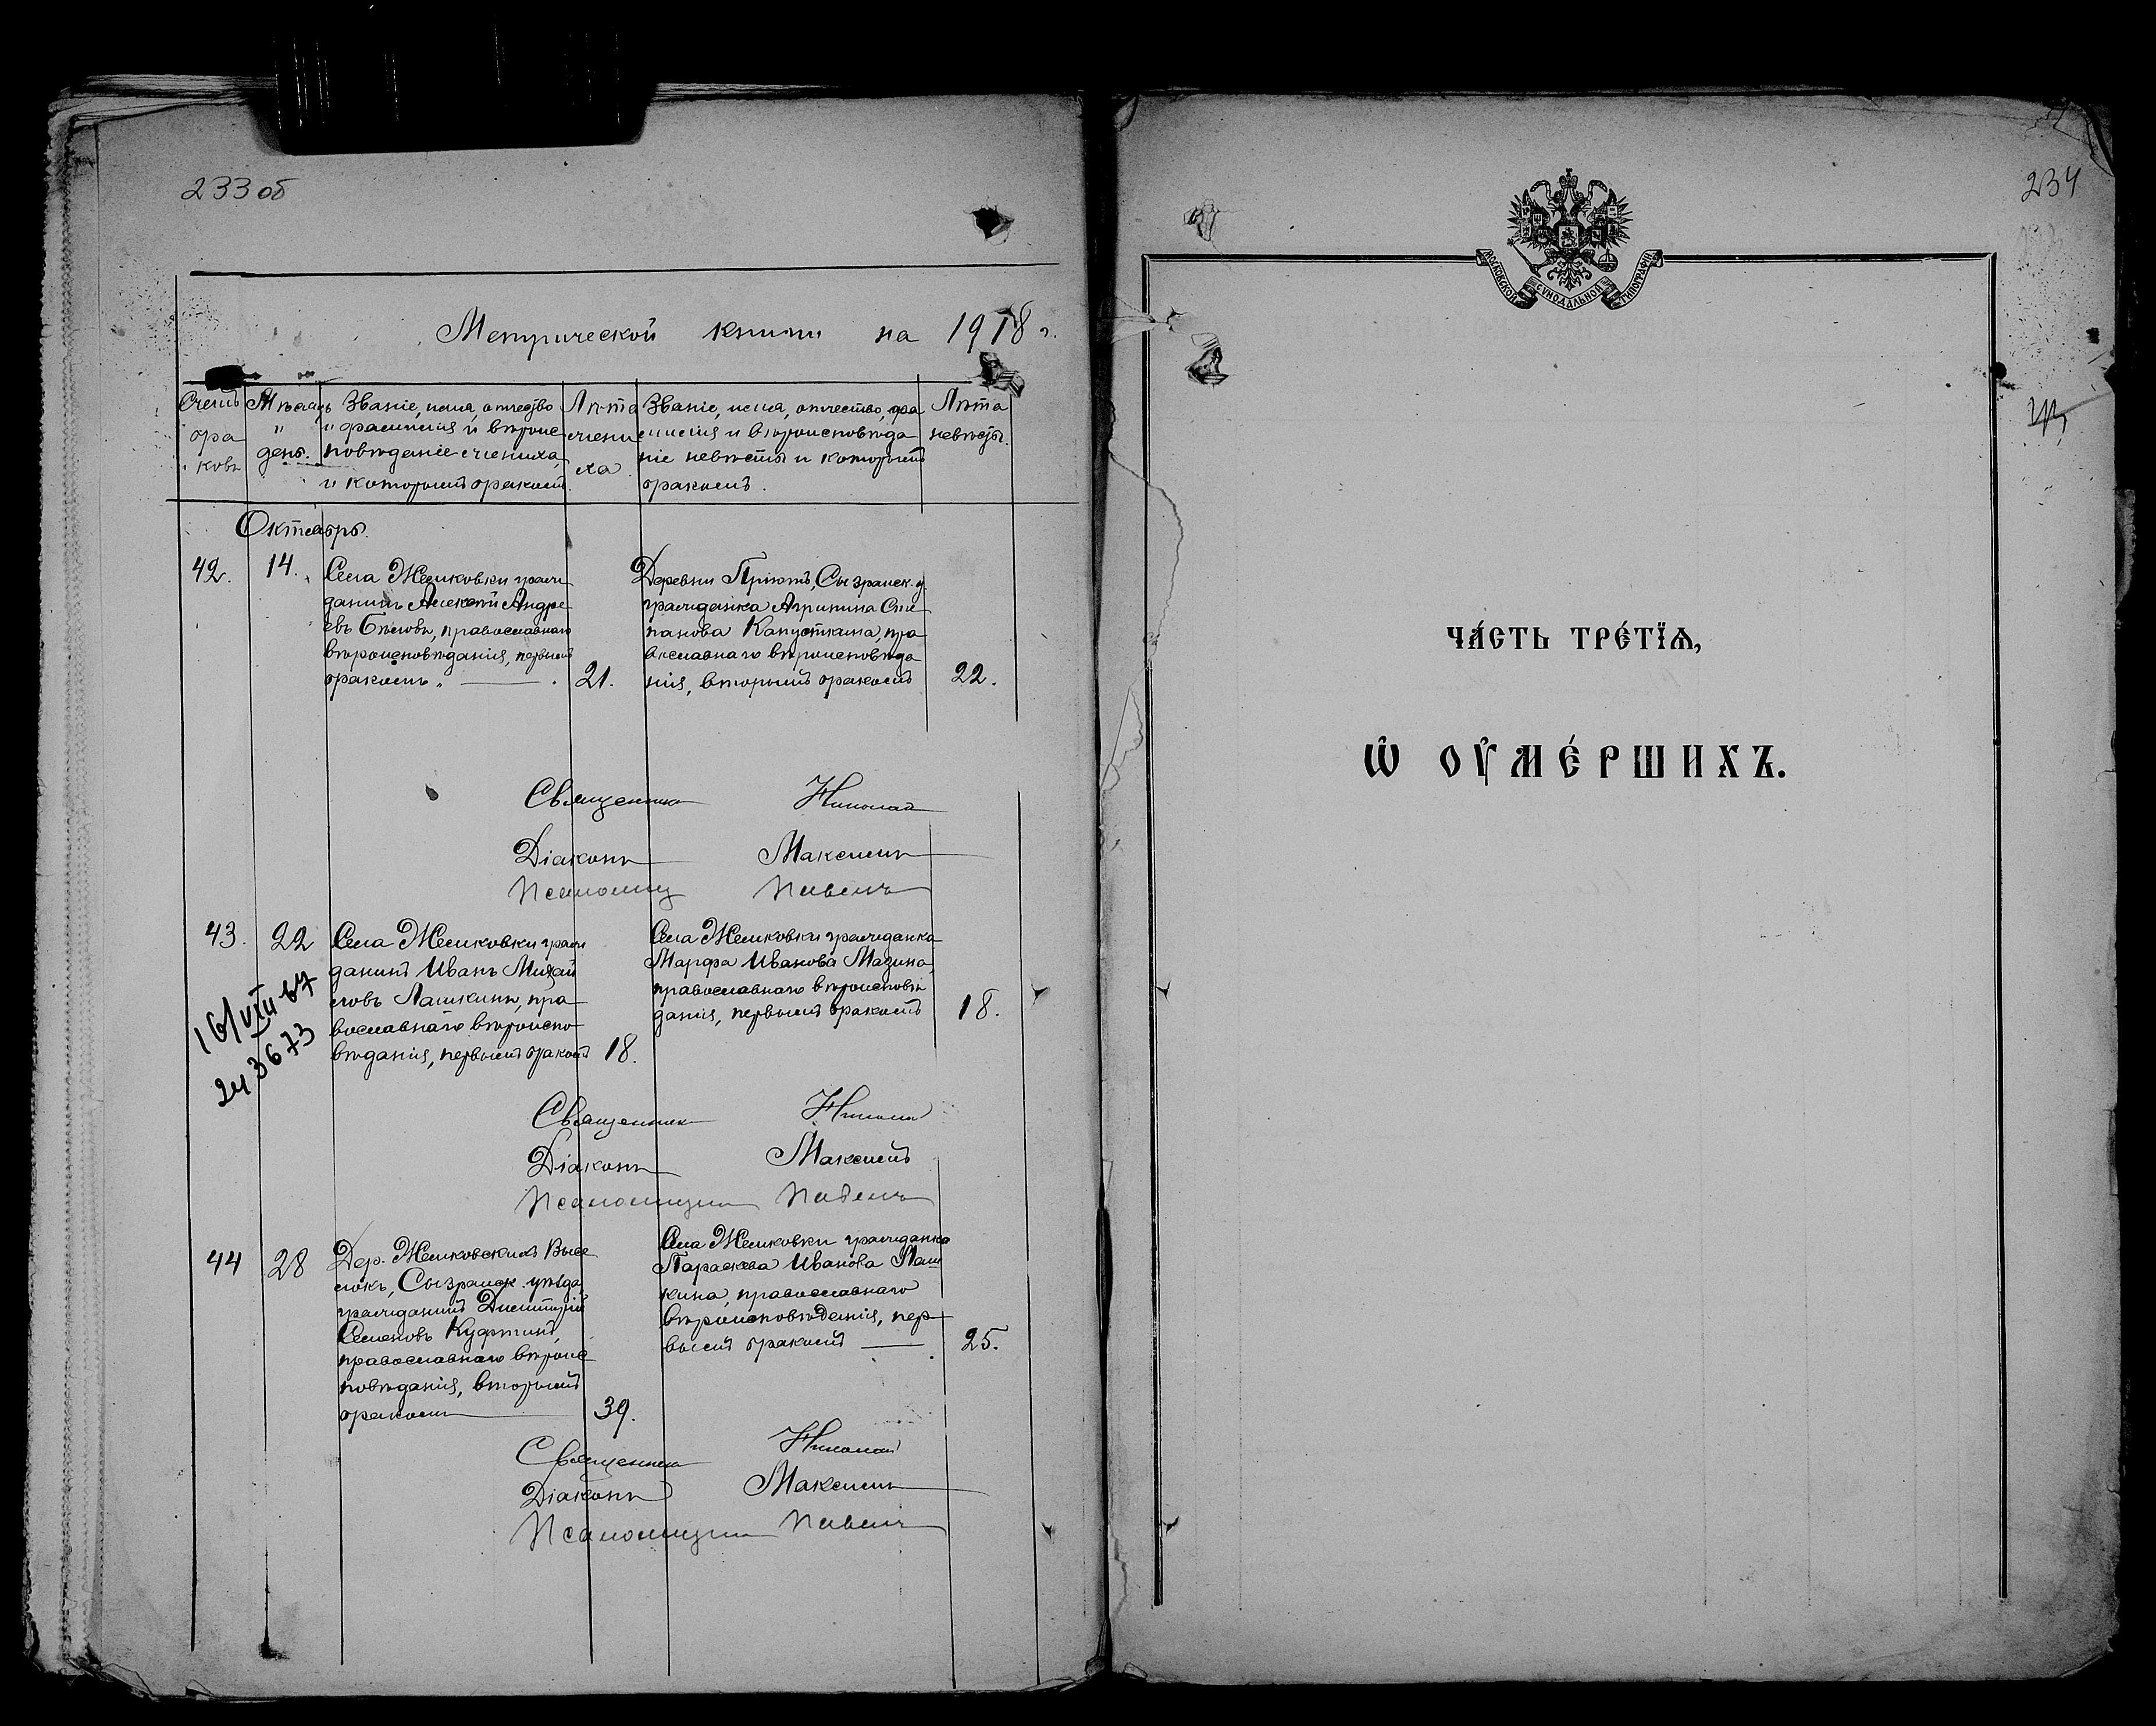 233 об
Метрической книги на 1918 г.
Счетъ
бра
ковъ
Мѣсяцъ
"
день.
Званіе, имя, отчество
и фамилія и вѣроис
повѣданіе жениха,
и которымъ бракомъ.
Лѣта
жени
ха
Званіе, имя, отчество, фа
милія и вѣроисповѣда
ніе невѣсты и которымъ
бракомъ.
Лѣта
невѣсты.
Октябрь.
42.
14.
Села Жемковки граж
данинъ Алексѣй Андре
евъ Бѣловъ, православнаго
вѣроисповѣданія, первымъ
бракомъ.
21.
Деревни Пріютъ, Сызранск. у.
гражданка Агрипина Сте
панова Капусткина, пра
вославнаго вѣроисповѣда
нія, вторымъ бракомъ
22.
Священникъ Николай
Діаконъ Максимъ
Псаломщ Павелъ
43.
22
Села Жемковки граж
данинъ Иванъ Михай
ловъ Лашкинъ, пра
вославнаго вѣроиспо
вѣданія, первымъ бракомъ
18.
Села Жемковки гражданка
Марфа Иванова Мазина,
православнаго вѣроисповѣ
данія, первымъ бракомъ
18.
16/VIII 67
243673
Священник Николай
Діаконъ Максимъ
Псаломщикъ Павелъ
44
28
Дер. Жемковскихъ Высе
локъ, Сызранск. уѣзда,
гражданинъ Димитрій
Семеновъ Куфтинъ,
православнаго вѣроис
повѣданія, вторымъ
бракомъ
39.
Села Жемковки гражданка
Параскева Иванова Лаш
кина, православнаго
вѣроисповѣданія, пер
вымъ бракомъ
25.
Священникъ Николай
Діаконъ Максимъ
Псаломщикъ Павелъ
234
МОСКОВСКОЙ СѴНОДАЛЬНОЙ ТИПОГРАФІИ
ЧА́СТЬ ТРЕ́ТЇѦ,
Ѡ҆ ОУ҆МЕ́РШИХЪ.